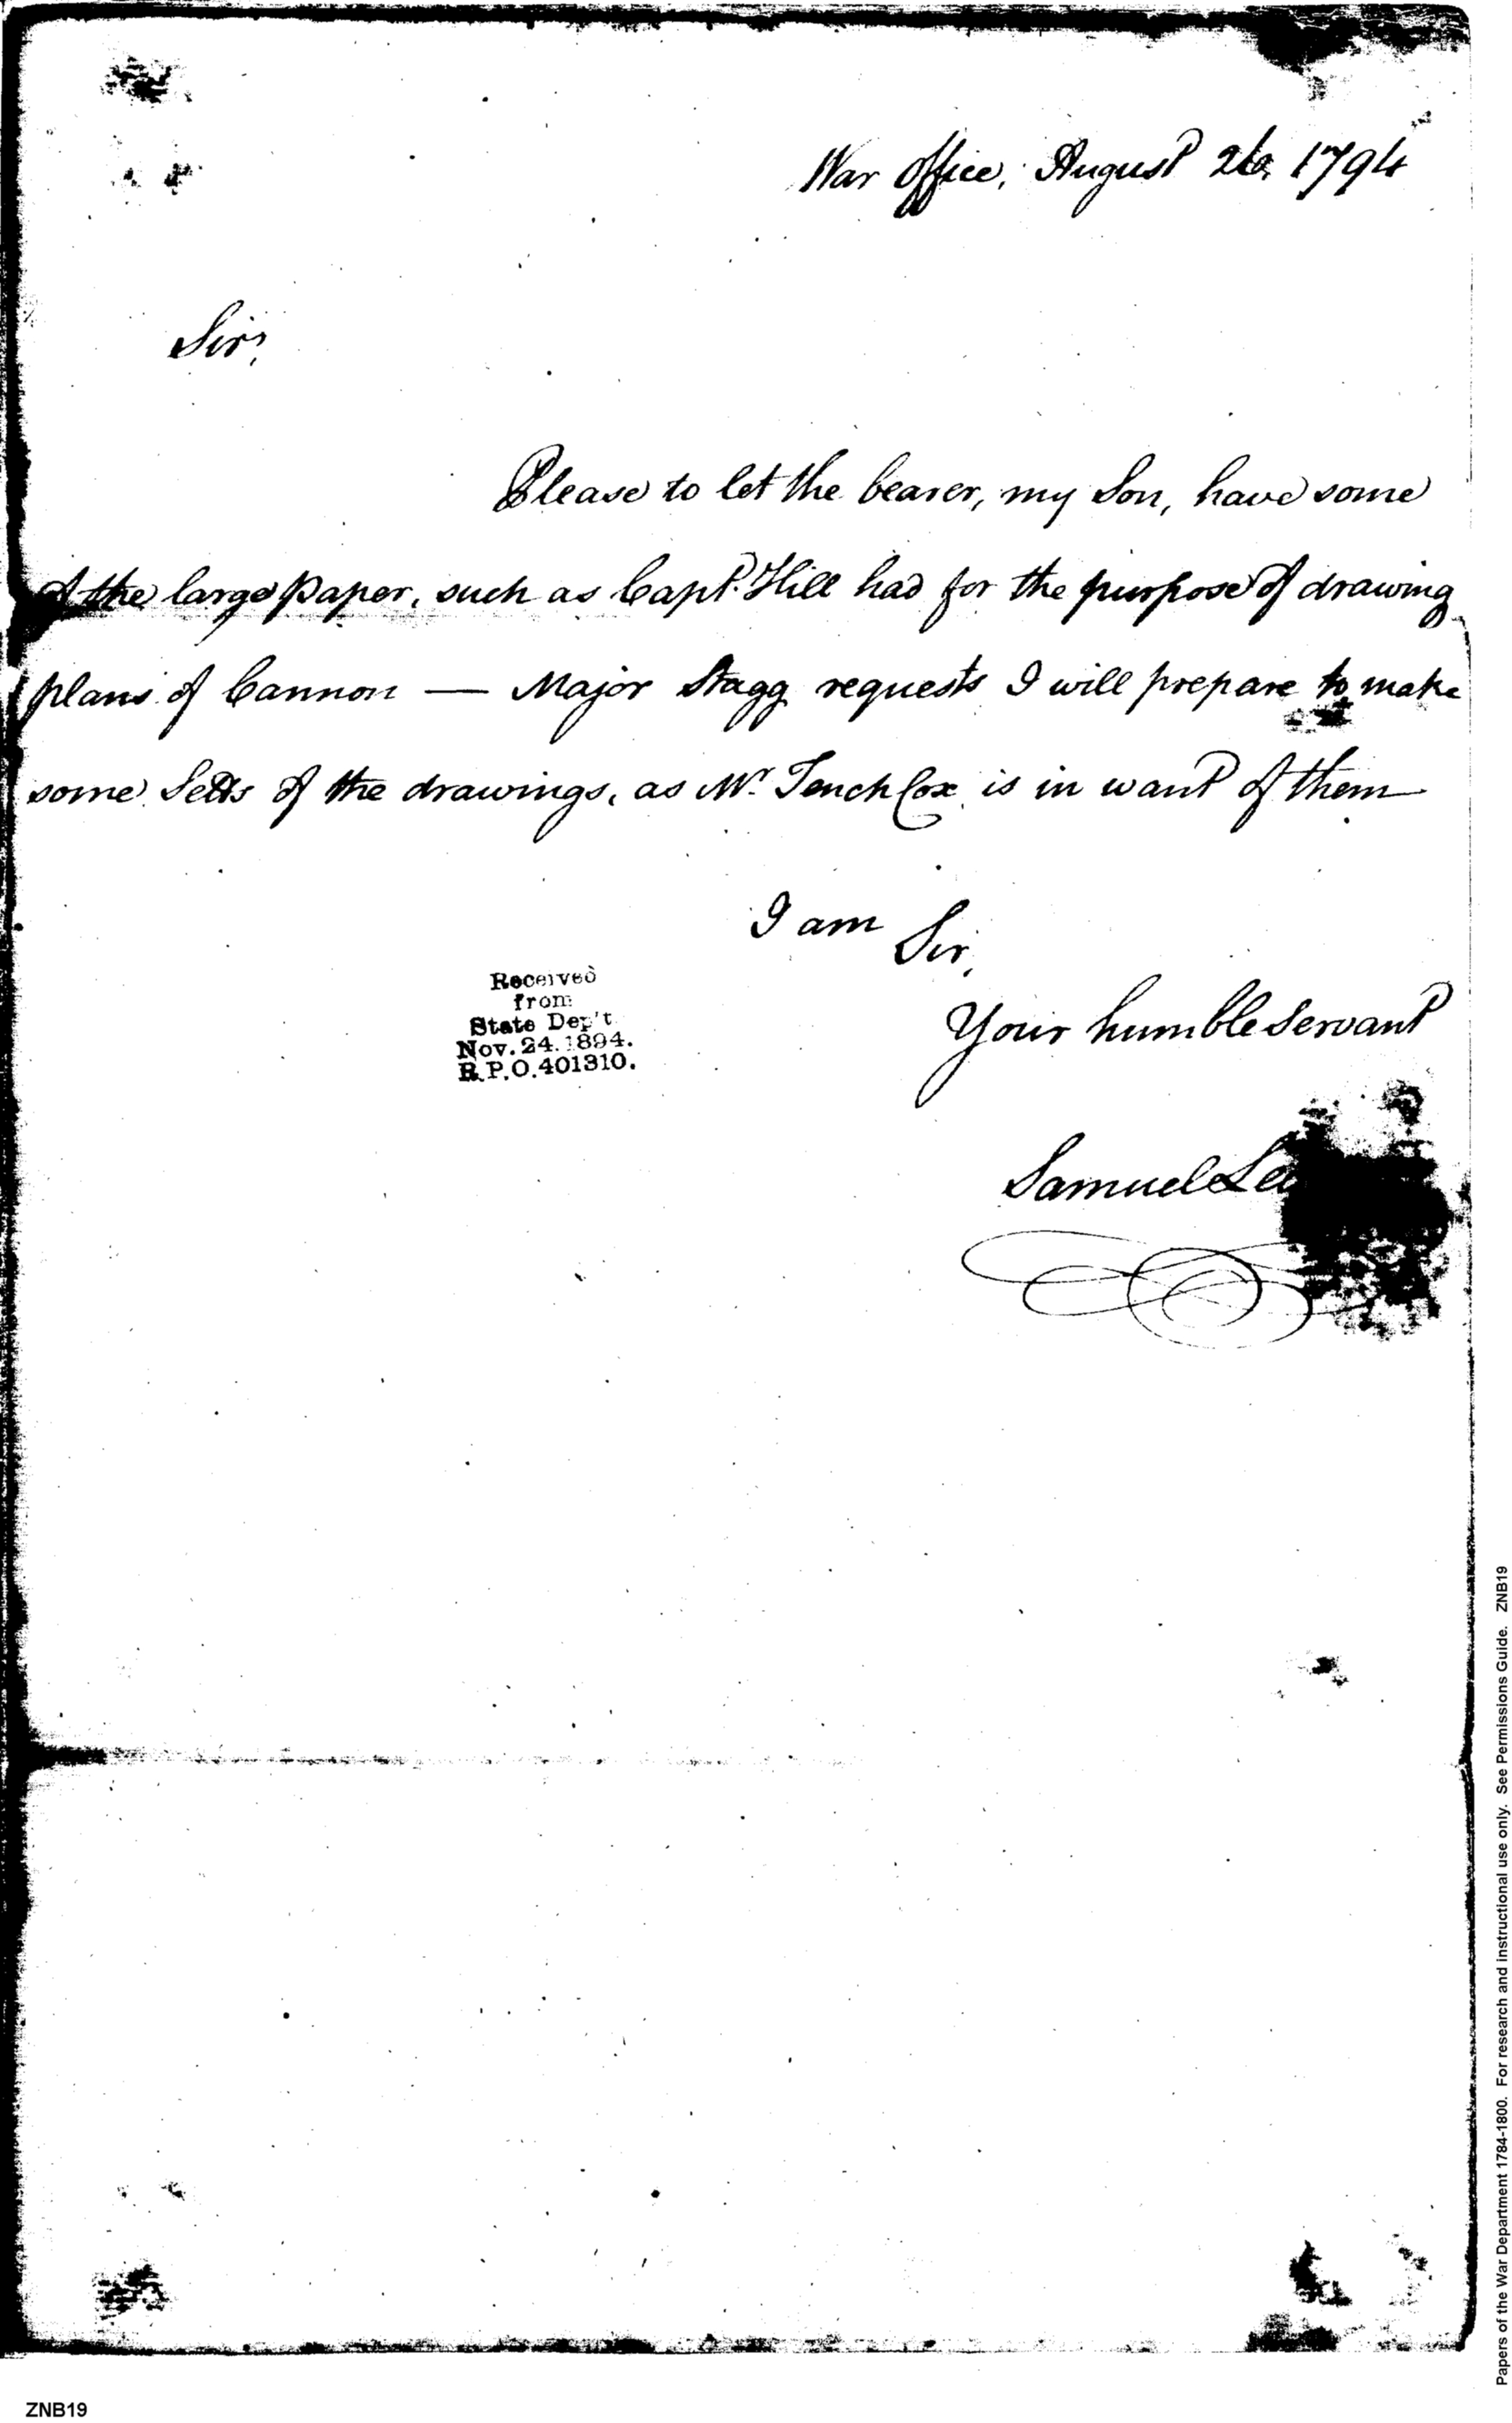 War Office, August 26, 1794
Sir,
Please to let the bearer, my Son, have some
of the large paper, such as Capt. Hill had for the purpose of drawing
plans of Cannon — Major Stagg requests I will prepare to make
some Setts of the drawings, as Mr. Tench Cox is in want of them
I am Sir,
Your humble Servant
Samuel
Received
from
State Dep't
Nov. 24. 1894.
R.P.O. 401310.
Papers of the War Department 1784-1800. For research and instructional use only. See Permissions Guide. ZNB19
ZNB19